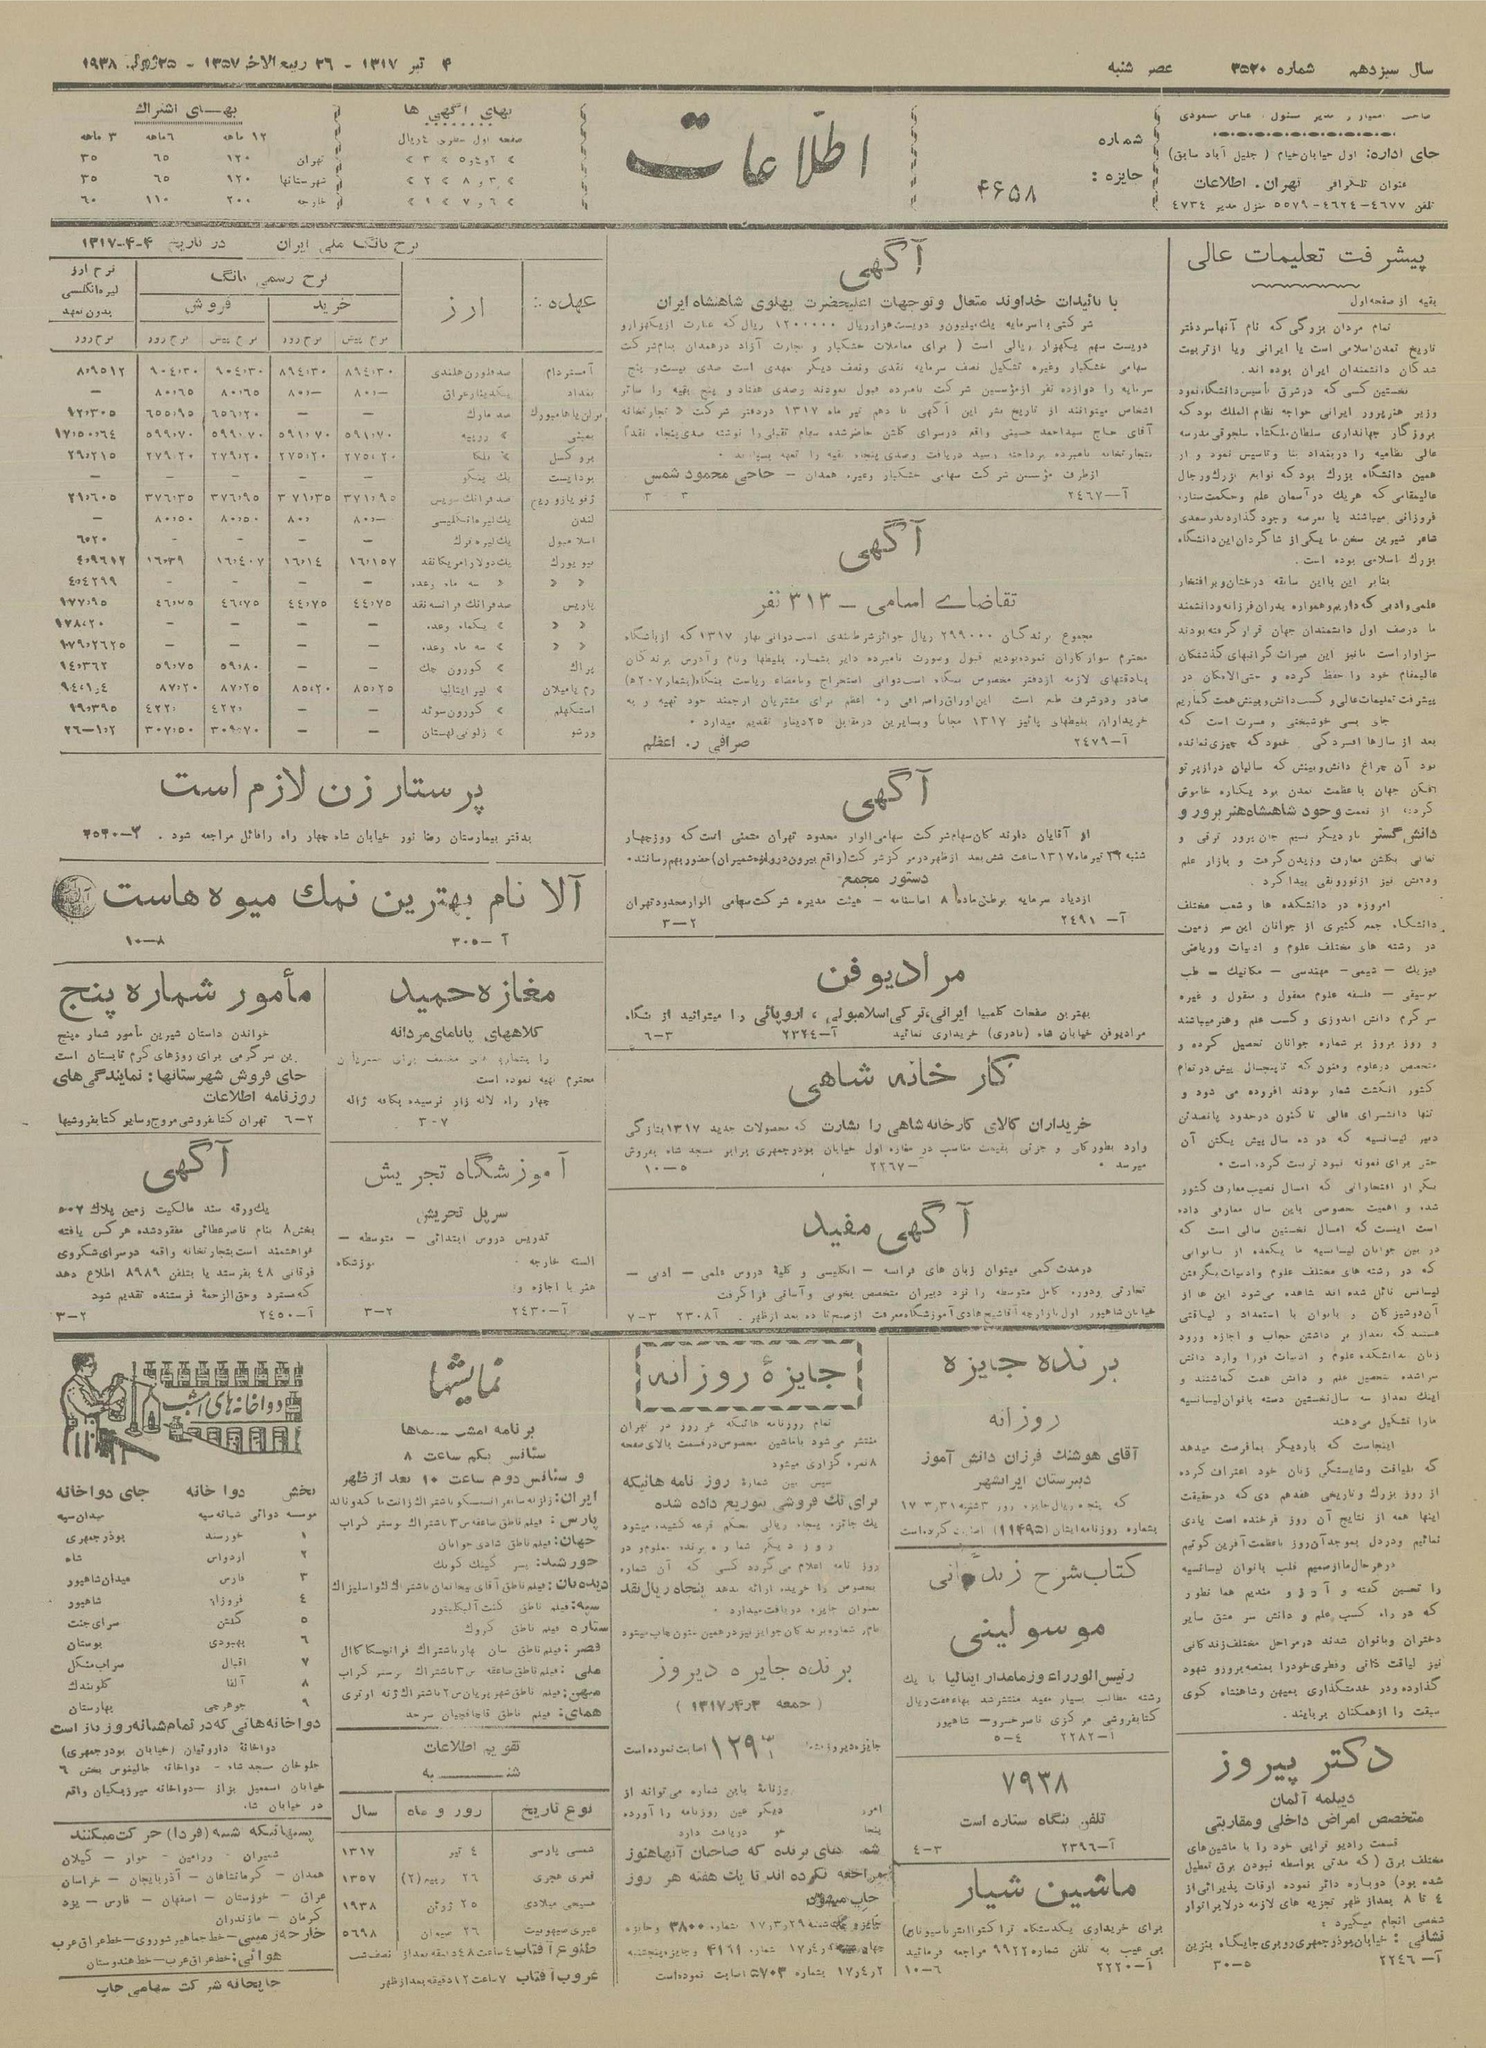 سال سیزدهم شماره ۳۵۲۰ عصر شنبه
۴ تیر ۱۳۱۷ - ۲۶ ربیع الاخر ۱۳۵۷ - ۲۵ ۱۹۳۸
صاحب امتیاز و مدیر مسئول: عباس مسعودی
جای اداره: اول خیابان خیام (جلیل آباد سابق)
عنوان تلگرافی تهران. اطلاعات
تلفن ۴۶۷۷-۴۶۲۴-۵۵۷۹ منزل مدیر ۴۷۳۴
شماره
جایزه: ۴۶۵۸
اطلاعات
بهای آگهی ها
صفحه اول سطری ۴ ریال
بهای اشتراک
۱۲ ماهه ۶ ماهه ۳ ماهه
تهران ۱۲۰ ۶۵ ۳۵
شهرستانها ۱۲۰ ۶۵ ۳۵
خارجه ۲۰۰ ۱۱۰ ۶۰
پیشرفت تعلیمات عالی
بقیه از صفحه اول
تمام مردان بزرگی که نام آنها سر دفتر
تاریخ تمدن اسلامی است یا ایرانی و یا از تربیت
شدگان دانشمندان ایران بوده اند.
نخستین کسی که در شرق تأسیس دانشگاه نمود
وزیر هنر پرور ایرانی خواجه نظام الملک بود که
بروزگار جهانداری سلطان ملکشاه سلجوقی مدرسه
عالی نظامیه را در بغداد بنا و تأسیس نمود و از
همین دانشگاه بزرگ بود که نوابغ بزرگ و رجال
عالیمقامی که هر یک در آسمان علم و حکمت ستاره
فروزانی میباشند پا بعرصه وجود گذاردند سعدی
شاعر شیرین سخن ما یکی از شاگردان این دانشگاه
بزرگ اسلامی بوده است.
بنابر این با این سابقه درخشان و پر افتخار
علمی و ادبی که داریم و همواره پدران فرزانه و دانشمند
ما در صف اول دانشمندان جهان قرار گرفته بودند
سزاوار است ما نیز این میراث گرانبهای گذشتگان
عالیمقام خود را حفظ کرده و حتی الامکان در
پیشرفت تعلیمات عالی و کسب دانش و بینش همت گماریم
جای بسی خوشبختی و مسرت است که
بعد از سالها افسردگی و خمود که چیزی نمانده
بود آن چراغ دانش و بینش که سالیان دراز پرتو
افکن جهان با عظمت تمدن بود یکباره خاموش
گردد، از نعمت وجود شاهنشاه هنر پرور و
دانش گستر بار دیگر نسیم جان پرور ترقی و
تعالی بگلشن معارف وزیدن گرفت و بازار علم
و دانش نیز از نو رونقی پیدا کرد.
امروزه در دانشکده ها و شعب مختلف
دانشگاه جمع کثیری از جوانان این سر زمین
در رشته های مختلف علوم و ادبیات و ریاضی
فیزیک - شیمی - مهندسی - مکانیک - طب
موسیقی - فلسفه علوم معقول و منقول و غیره
سرگرم دانش اندوزی و کسب علم و هنر میباشند
و روز بروز بر شماره جوانان تحصیل کرده و
متخصص در علوم و فنون که تا پنجسال پیش در تمام
کشور انگشت شمار بودند افزوده می شود و
تنها دانشسرای عالی تا کنون در حدود پانصد تن
دبیر لیسانسیه که در ده سال پیش یکتن آن
حتی برای نمونه نبود تربیت کرده است.
یکی از افتخاراتی که امسال نصیب معارف کشور
شده و اهمیت خصوصی باین سال معارفی داده
است اینست که امسال نخستین سالی است که
در بین جوانان لیسانسیه ما یکعده از بانوانی
که در رشته های مختلف علوم و ادبیات بگرفتن
لیسانس نائل شده اند مشاهده می شود این عده از
آن دوشیزگان و بانوان با استعداد و لیاقتی
هستند که بعد از بر داشتن حجاب و اجازه ورود
زنان بدانشکده علوم و ادبیات فورا وارد دانش
سرا شده بتحصیل علم و دانش همت گماشتند و
اینک بعد از سه سال نخستین دسته بانوان لیسانسیه
ما را تشکیل می دهند
اینجاست که بار دیگر بما فرصت میدهد
که بلیاقت و شایستگی زنان خود اعتراف کرده
از روز بزرگ و تاریخی هفدهم دی که در حقیقت
اینها همه از نتایج آن روز فرخنده است یادی
نمائیم و درود بموجد آن روز باعظمت آفرین گوئیم
در هر حال ما از صمیم قلب بانوان لیسانسیه
را تحسین گفته و آرزو مندیم هما نطور
که در راه کسب علم و دانش سر مشق سایر
دختران و بانوان شدند در مراحل مختلف زندگانی
نیز لیاقت ذاتی و فطری خود را بمنصه بروز و شهود
گذارده و در خدمتگذاری بمیهن و شاهنشاه گوی
سبقت را از همگنان بربایند.
دکتر پیروز
دیپلمه آلمان
متخصص امراض داخلی و مقاربتی
قسمت رادیو تراپی خود را با ماشین های
مختلف برق (که مدتی بواسطه نبودن برق تعطیل
شده بود) دوباره دائر نموده اوقات پذیرائی از
۴ تا ۸ بعد از ظهر تجزیه های لازمه در لابراتوار
شخصی انجام میگیرد:
نشانی: خیابان بوذرجمهری روبروی جایگاه بنزین
آ- ۲۲۴۶ ۳۰-۵
آگهی
با تائیدات خداوند متعال و توجهات اعلیحضرت پهلوی شاهنشاه ایران
شرکتی با سرمایه یک میلیون و دویست هزار ریال ۱۲۰۰۰۰۰ ریال که عبارت از یکهزار و
دویست سهم یکهزار ریالی است (برای معاملات خشکبار و تجارت آزاد در همدان بنام شرکت
سهامی خشکبار و غیره تشکیل نصف سرمایه نقدی و نصف دیگر تعهدی است صدی بیست و پنج
سرمایه را دوازده نفر از مؤسسین شرکت نامبرده قبول نمودند و صدی هفتاد و پنج بقیه را سائر
اشخاص میتوانند از تاریخ نشر این آگهی تا دهم تیر ماه ۱۳۱۷ در دفتر شرکت «تجارتخانه
آقای حاج سید احمد حسینی واقع در سرای گلشن حاضر شده سهام تقبلی را نوشته صدی پنجاه نقد)
بتجارتخانه نامبرده پرداخته رسید دریافت و صدی پنجاه بقیه را تعهد بسپارند.
از طرف مؤسسین شرکت سهامی خشکبار و غیره همدان - حاجی محمود شمس
آ- ۲۴۶۷ ۳ ۳
آگهی
تقاضای اسامی - ۳۱۳ نفر
مجموع برندگان ۲۹۹۰۰۰ ریال جوائز شرط بندی اسب دوانی بهار ۱۳۱۷ که از باشگاه
محترم سوارکاران نموده بودیم قبول و صورت نامبرده دایر بشماره بلیطها و نام و آدرس برندگان
با دقتهای لازمه از دفتر مخصوص بنگاه اسب دوانی استخراج و بامضاء ریاست بنگاه (بشماره ۵۲۰۷)
صادر و در شرف طبع است این اوراق را صرافی ر. اعظم برای مشتریان ارجمند خود تهیه و به
خریداران بلیطهای پائیز ۱۳۱۷ مجاناً و بسایرین در مقابل ۲۵ دینار تقدیم میدارد.
آ- ۲۴۷۹ صرافی ر. اعظم
آگهی
از آقایان دارندگان سهام شرکت سهامی الوار محدود تهران متمنی است که روز چهار
شنبه ۲۲ تیر ماه ۱۳۱۷ ساعت شش بعد از ظهر در مرکز شرکت (واقع بیرون دروازه شمیران) حضور بهم رسانند.
دستور مجمع
ازدیاد سرمایه بر طبق ماده ۸ اساسنامه - هیئت مدیره شرکت سهامی الوار محدود تهران
آ- ۲۴۹۱ ۳-۲
مرادیوفن
بهترین صفحات کلمبیا ایرانی، ترکی اسلامبولی، اروپائی را میتوانید از بنگاه
مرادیوفن خیابان شاه (نادری) خریداری نمائید آ- ۲۳۲۴ ۶-۳
کارخانه شاهی
خریداران کالای کارخانه شاهی را بشارت که محصولات جدید ۱۳۱۷ بتازگی
وارد بطور کلی و جزئی بقیمت مناسب در مغازه اول خیابان بوذرجمهری برابر مسجد شاه بفروش
میرسد. - ۲۲۶۷ ۱۰-۵
آگهی مفید
در مدت کمی میتوان زبان های فرانسه - انگلیسی و کلیه دروس علمی - ادبی -
تجارتی و دوره کامل متوسطه را نزد دبیران متخصص بخوبی و آسانی فرا گرفت
خیابان شاهپور اول بازارچه آموزشگاه معرفت از صبح تا ده بعد از ظهر. آ ۲۳۰۸ ۷-۳
نرخ بانک ملی ایران در تاریخ ۴-۴-۱۳۱۷
عهده: ارز نرخ رسمی بانک نرخ ارز لیره انگلیسی بدون تعهد
خرید فروش
نرخ پیش نرخ روز نرخ پیش نرخ روز نرخ روز
آمستردام صد فلورن هلندی ۸۹۴،۳۰ ۸۹۴،۳۰ ۹۰۴،۳۰ ۹۰۴،۳۰ ۸،۹۵۱۲
بغداد یکدینار عراق ۸۰،- ۸۰،- ۸۰،۶۵ ۸۰،۶۵ -
برلن یا هامبورک صد مارک - - ۶۵۶،۲۰ ۶۵۵،۹۵ ۱۲،۳۰۵
بمبئی » روپیه ۵۹۱،۷۰ ۵۹۱،۷۰ ۵۹۹،۷۰ ۵۹۹،۷۰
بروکسل » بلگا ۲۷۵،۲۰ ۲۷۵،۲۰ ۲۷۹،۲۰ ۲۷۹،۲۰ ۲۹،۲۱۵
بوداپست یک پنگو - - - - -
ژنو یا زوریخ صد فرانک سویس ۳۷۱،۹۵ ۳۷۱،۳۵ ۳۷۶،۹۵ ۳۷۶،۳۵ ۲۱،۶۰۵
لندن یک لیره انگلیسی ۸۰،- ۸۰، ۸۰،۵۰ ۸۰،۵۰ -
اسلامبول یک لیره ترک - - - - ۶،۲۰
نیویورک یک دولار امریکا نقد ۱۶،۱۵۷ ۱۶،۱۴ ۱۶،۴۰۷ ۱۶،۳۹ ۴،۹۶۱۲
» » » سه ماه وعده - - - -
پاریس صد فرانک فرانسه نقد ۴۴،۷۵ ۴۴،۷۵ ۴۶،۷۵ ۴۶،۷۵ ۱۷۷،۹۵
» » » یکماه وعده - - - - ۱۷۸،۲۰
» » » سه ماه وعده - - - - ۱۷۹،۲۶۲۵
پراگ » کورون چک - - ۵۹،۸۰ ۵۹،۷۵
رم یا میلان » لیر ایتالیا ۸۵،۲۵ ۸۵،۲۰ ۸۷،۲۵ ۸۷،۲۰
استکهلم » کورون سوئد - - ۴۲۲، ۴۲۲، ۱۹،۳۹۵
ورشو » زلوتی لهستان - - ۳۰۹،۷۰ ۳۰۷،۵۰
پرستار زن لازم است
بدفتر بیمارستان رضا نور خیابان شاه چهار راه رافائل مراجعه شود. ۲-۲۵۳۰
آلا نام بهترین نمک میوه هاست
آ- ۳۰۵ ۱۰-۸
مغازه حمید
کلاههای پانامای مردانه
محترم تهیه نموده است
چهار راه لاله زار نرسیده بکافه ژاله
۳۰-۷
مأمور شماره پنج
خواندن داستان شیرین مأمور شماره پنج
بهترین سرگرمی برای روزهای گرم تابستان است
جای فروش شهرستانها: نمایندگی های
روزنامه اطلاعات
تهران کتابفروشی مروج و سایر کتابفروشیها ۶-۲
آموزشگاه تجریش
سرپل تجریش
تدریس دروس ابتدائی - متوسطه -
السنه خارجه
آ- ۲۴۳۰ ۳-۲
آگهی
یک ورقه سند مالکیت زمین پلاک ۵۰۲
بخش ۸ بنام ناصر عطائی مفقود شده هر کس یافته
خواهشمند است بتجارتخانه واقعه در سرای شکروی
فوقانی ۴۸ بفرستد یا بتلفن ۸۹۸۹ اطلاع دهد
که مسترد و حق الزحمة فرستنده تقدیم شود
آ- ۲۴۵۰ ۳-۲
برنده جایزه
روزانه
آقای هوشنگ فرزان دانش آموز
دبیرستان ایرانشهر
که پنجاه ریال جایزه روز ۳ شنبه ۱۷،۳،۳۱
بشماره روزنامه ایشان (۱۱۴۹۵) اصابت کرده است
کتاب شرح زندگانی
موسولینی
رئیس الوزراء و زمامدار ایتالیا با یک
رشته مطالب بسیار مفید منتشر شد بهاء هفت ریال
کتابفروشی مرکزی ناصر خسرو - شاهپور
آ- ۲۲۸۲ ۵-۴
۷۹۳۸
تلفن بنگاه ستاره است
آ- ۲۳۹۶ ۴-۳
ماشین شیار
برای خریداری یکدستگاه تراکتور (انترناسیونال)
بی عیب به تلفن شماره ۹۹۲۲ مراجعه فرمائید
آ- ۲۲۲۰ ۱۰-۶
جایزهٔ روزانه
تمام روزنامه هائیکه هر روز در تهران
منتشر می شود با ماشین مخصوص در قسمت بالای صفحه
۸ نمره گزاری میشود
سپس بین شمارهٔ روزنامه هائیکه
برای تک فروشی توزیع داده شده
یک جائزه پنجاه ریالی بحکم قرعه کشیده میشود
روز دیگر شماره برنده معلوم و در
روزنامه اعلام می گردد کسی که آن شماره
مخصوص را خریده ارائه بدهد پنجاه ریال نقد
بعنوان جایزه دریافت میدارد.
نام و شماره برندگان جوایز نیز در همین ستون چاپ میشود
برنده جایزه دیروز
(جمعه ۱۳۱۷،۴،۳)
جایزه دیروز بشماره اصابت نموده است
روزنامهٔ باین شماره می تواند از
دیگر عین روزنامه را آورده
دریافت دارد
شماره های برنده که صاحبان آنها هنوز
مراجعه نکرده اند تا یک هفته هر روز
چاپ میشود
۱۷،۳،۲۹ شماره ۳۸۰۰ و جایزه
شماره ۴۱۶۱ و جایزه پنجشنبه
۱۷،۴،۲ بشماره ۵۷۰۳ اصابت نموده است
نمایشها
برنامه امشب سینماها
سئانس یکم ساعت ۸
و سئانس دوم ساعت ۱۰ بعد از ظهر
پارس: فیلم ناطق صاعقه س ۳ باشتراک بوستر کراب
جهان: فیلم ناطق شادی جوانان
دیده بان: فیلم ناطق آقای بیخانمان باشتراک
سپه: فیلم ناطق کنت آلیگلیتور
ستاره فیلم ناطق
ملی: فیلم ناطق صاعقه س ۳ باشتراک بوستر کراب
همای: فیلم ناطق قاچاقچیان سرحد
تقویم اطلاعات
شنبه
نوع تاریخ روز و ماه سال
شمسی پارسی ۴ تیر ۱۳۱۷
قمری هجری ۲۶ ربیع (۲) ۱۳۵۷
مسیحی میلادی ۲۵ ژوئن ۱۹۳۸
عبری صیهونیت ۲۶ سیوان ۵۶۹۸
طلوع آفتاب ۴ ساعت ۴۸ دقیقه بعد از نصف شب
غروب آفتاب ۷ ساعت ۱۲ دقیقه بعد از ظهر
دواخانه های امشب
بخش دوا خانه جای دواخانه
موسسه دوائی شبانه سپه میدان سپه
۱ خورسند بوذرجمهری
۲ اردواس شاه
۳ فارس میدان شاهپور
۴ فروزان شاهپور
۵ گلشن سرای جنت
۶ بهبودی بوستان
۷ اقبال سرآب منگل
۸ آلفا گلوبندک
۹ جوهرچی بهارستان
دواخانه هائی که در تمام شبانه روز باز است
دواخانهٔ داروئیان (خیابان بوذرجمهری)
جلوخان مسجد شاه - دواخانه جالینوس بخش ۶
خیابان اسمعیل بزاز - دواخانه میرزیکیان واقع
در خیابان شاه.
پستهائیکه شنبه (فردا) حرکت میکنند
شمیران - ورامین - خوار - گیلان
همدان - کرمانشاهان - آذربایجان - خراسان
عراق - خوزستان - اصفهان - فارس - یزد
کرمان - مازندران
خارجه زمینی - خط جماهیر شوروی - خط عراق عرب
هوائی: خط عراق عرب - خط هندوستان
چاپخانه شرکت سهامی چاپ